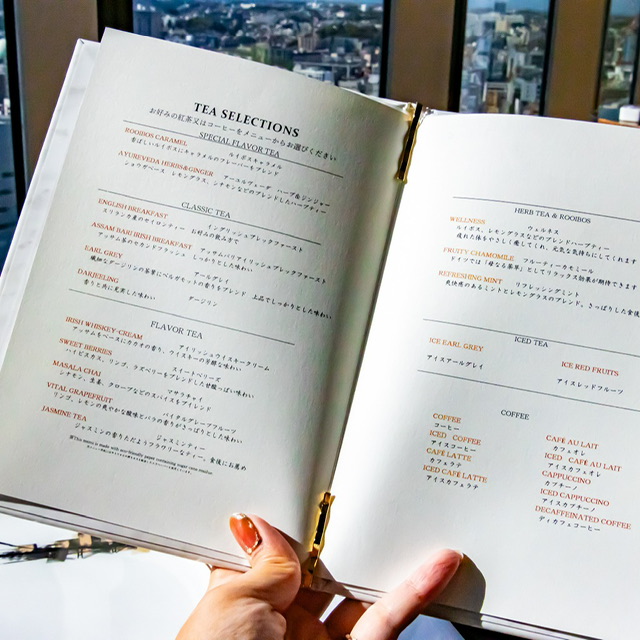 TEA SELECTIONS
お好みの紅茶又はコーヒーをメニューからお選びください
SPECIAL FLAVOR TEA
ROOIBOS CARAMEL ルイボスキャラメル
香ばしいルイボスにキャラメルのフレーバーをブレンド
AYUREVEDA HERBS&GINGER アーユルヴェーダ ハーブ&ジンジャー
ショウガベース レモングラス、シナモンなどのブレンドしたハーブティー
CLASSIC TEA
ENGLISH BREAKFAST イングリッシュブレックファースト
スリランカ産のセイロンティー お好みの飲み方で
ASSAM BARI IRISH BREAKFAST アッサムバリアイリッシュブレックファースト
アッサム茶のセカンドフラッシュ しっかりとした味わい
EARL GREY アールグレイ
ベルガモットの香りをブレンド 上品でしっかりとした味わい
DARJEELING ダージリン
香りと共に充実した味わい
FLAVOR TEA
IRISH WHISKEY-CREAM アイリッシュウイスキークリーム
アッサムをベースにカカオの香り、ウイスキーの芳醇な味わい
SWEET BERRIES スイートベリーズ
ハイビスカス、リンゴ、ラズベリーをブレンドした甘酸っぱい味わい
MASALA CHAI マサラチャイ
シナモン、生姜、クローブなどのスパイスをブレンド
VITAL GRAPEFRUIT バイタルグレープフルーツ
リンゴ、レモンの爽やかな酸味とバラの香りがすっきりとした味わい
JASMINE TEA ジャスミンティー
ジャスミンの香りただようフラワリーなティー、食後にお薦め
HERB TEA & ROOIBOS
WELLNESS ウェルネス
ルイボス、レモングラスなどのブレンドハーブティー
疲れた体をやさしく癒してくれ、元気な気持ちにしてくれます
FRUITY CHAMOMILE フルーティーカモミール
ドイツでは「母なる薬草」としてリラックス効果が期待できます
REFRESHING MINT リフレッシングミント
爽快感のあるミントとレモングラスのブレンド、さっぱりした食後
ICED TEA
ICE EARL GREY ICE RED FRUITS
アイスアールグレイ アイスレッドフルーツ
COFFEE
COFFEE
コーヒー
ICE COFFEE
アイスコーヒー
CAFE LATTE
カフェラテ
ICED CAFE LATTE
アイスカフェラテ
CAFE AU LAIT
カフェオレ
ICED CAFE AU LAIT
アイスカフェオレ
CAPPUCCINO
カプチーノ
ICED CAPPUCCINO
アイスカプチーノ
DECAFFEINATED COFFEE
ディカフェコーヒー